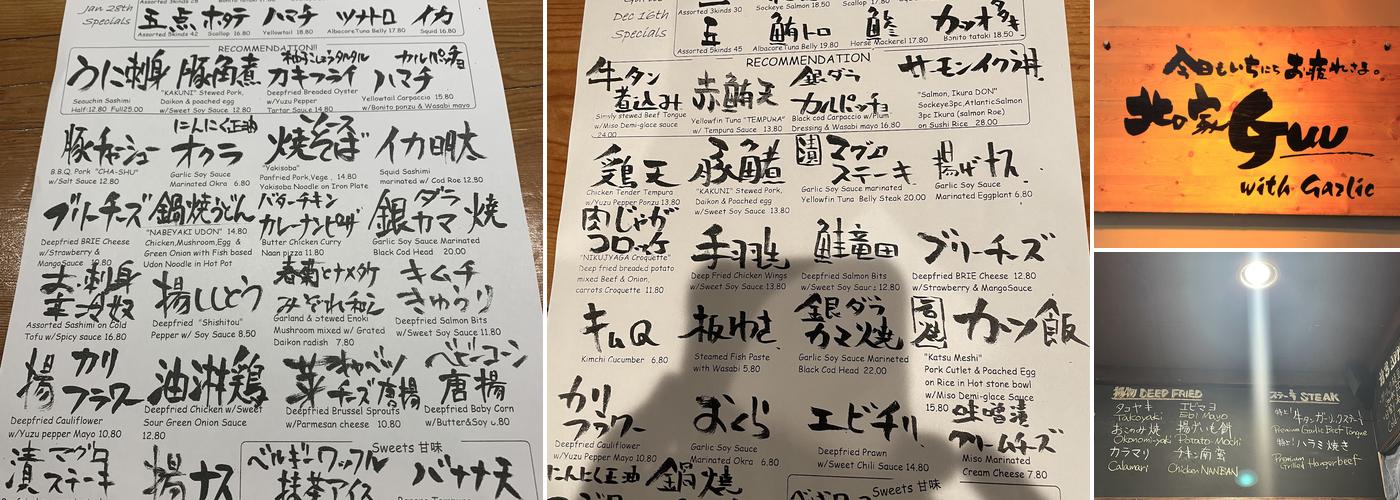 Jan 28th
Specials
五点
Assorted 5kinds 42
ホタテ
Scallop 16.80
ハマチ
Yellowtail 18.80
ツナトロ
AlbacoreTuna Belly 17.80
イカ
Squid 16.80
RECOMMENDATION!!
うに刺身
Seauchin Sashimi
Half:12.80 Full25.00
豚角煮
"KAKUNI" Stewed Pork,
Daikon & poached egg
w/Sweet Soy Sauce 12.80
柚子こしょうタルタル
カキフライ
Deepfried Breaded Oyster
w/Yuzu Pepper
Tartar Sauce 14.80
カルパッチョ
ハマチ
Yellowtail Carpaccio 15.80
w/Bonito ponzu & Wasabi mayo
豚チャーシュー
B.B.Q. Pork "CHA-SHU"
w/Salt Sauce 12.80
にんにく正油
オクラ
Garlic Soy Sauce
Marinated Okra 6.80
焼そば
"Yakisoba"
Panfried Pork,Vege. 14.80
Yakisoba Noodle on Iron Plate
イカ明太
Squid Sashimi
marinated w/ Cod Roe 12.80
ブリーチーズ
Deepfried BRIE Cheese
w/Strawberry &
MangoSauce
鍋焼うどん
"NABEYAKI UDON" 14.80
Chicken,Mushroom,Egg &
Green Onion with Fish based
Udon Noodle in Hot Pot
バターチキン
カレーナンピザ
Butter Chicken Curry
Naan pizza 11.80
銀ダラ
カマ焼
Garlic Soy Sauce Marinated
Black Cod Head 20.00
お刺身
冷奴
Assorted Sashimi on Cold
Tofu w/Spicy sauce 16.80
揚ししとう
Deepfried "Shishitou"
Pepper w/ Soy Sauce 8.50
春菊とナメタケ
みぞれ和え
Garland & Stewed Enoki
Mushroom mixed w/ Grated
Daikon radish 7.80
キムチ
きゅうり
Deepfried Salmon Bits
w/Sweet Soy Sauce 11.80
揚カリフラワー
Deepfried Cauliflower
w/Yuzu pepper Mayo 10.80
油淋鶏
Deepfried Chicken w/Sweet
Sour Green Onion Sauce
12.80
芽キャベツ
チーズ唐揚
Deepfried Brussel Sprouts
w/Parmesan cheese 10.80
ベビーコーン
唐揚
Deepfried Baby Corn
w/Butter&Soy 6.80
漬マグロ
ステーキ
揚ナス
Sweets 甘味
ベルギーワッフル
抹茶アイス
バナナ天
Dec 16th
Specials
Assorted 3kinds 30
Sockeye Salmon 18.80
Scallop 17.80
五
Assorted 5kinds 45
鮪トロ
AlbacoreTuna Belly 19.80
鯵
Horse Mackerel 17.80
カツオタタキ
Bonito tataki 18.50
RECOMMENDATION
牛タン
煮込み
Simly stewed Beef Tongue
w/Miso Demi-glace sauce
24.00
赤鮪天
Yellowfin Tuna "TEMPURA"
w/ Tempura Sauce 13.80
銀ダラ
カルパッチョ
Black cod Carpaccio w/Plum
Dressing & Wasabi mayo 16.80
サーモンイクラ丼
"Salmon, Ikura DON"
Sockeye3pc,AtlanticSalmon
3pc Ikura (salmon Roe)
on Sushi Rice 28.00
鶏天
Chicken Tender Tempura
w/Yuzu Pepper Ponzu 13.80
豚角煮
"KAKUNI" Stewed Pork,
Daikon & Poached egg
w/Sweet Soy Sauce 13.80
漬マグロ
ステーキ
Garlic Soy Sauce marinated
Yellowfin Tuna Belly Steak 20.00
揚げナス
Garlic Soy Sauce
Marinated Eggplant 6.80
肉じゃが
コロッケ
"NIKUJYAGA Croquette"
Deep fried breaded potato
mixed Beef & Onion,
carrots Croquette 11.80
手羽先
Deep Fried Chicken Wings
w/Sweet Soy Sauce 13.80
鮭竜田
Deepfried Salmon Bits
w/Sweet Soy Sauce 12.80
ブリーチーズ
Deepfried BRIE Cheese 12.80
w/Strawberry & MangoSauce
キムQ
Kimchi Cucumber 6.80
板わさ
Steamed Fish Paste
with Wasabi 5.80
銀ダラ
カマ焼
Garlic Soy Sauce Marineted
Black Cod Head 22.00
カツ飯
"Katsu Meshi"
Pork Cutlet & Poached Egg
on Rice in Hot stone bowl
w/Miso Demi-glace Sauce
15.80
カリフラワー
Deepfried Cauliflower
w/Yuzu Pepper Mayo 10.80
おくら
Garlic Soy Sauce
Marinated Okra 6.80
エビチリ
Deepfried Prawn
w/Sweet Chili Sauce 14.80
味噌漬
クリームチーズ
Miso Marinated
Cream Cheese 7.80
にんにく正油
鍋焼
Sweets 甘味
今日もいちにちお疲れさま。
北の家
Guu
with Garlic
揚物 DEEP FRIED
タコヤキ
Takoyaki
おこのみ焼
Okonomi-yaki
カラマリ
Calamari
エビマヨ
Ebi Mayo
揚げいも餅
Potato-Mochi
チキン南蛮
Chicken NANBAN
ステーキ STEAK
特上!牛タンガーリックステーキ
Premium Garlic Beef Tongue
特上!ハラミ焼き
Premium
Grilled Hangerbeef